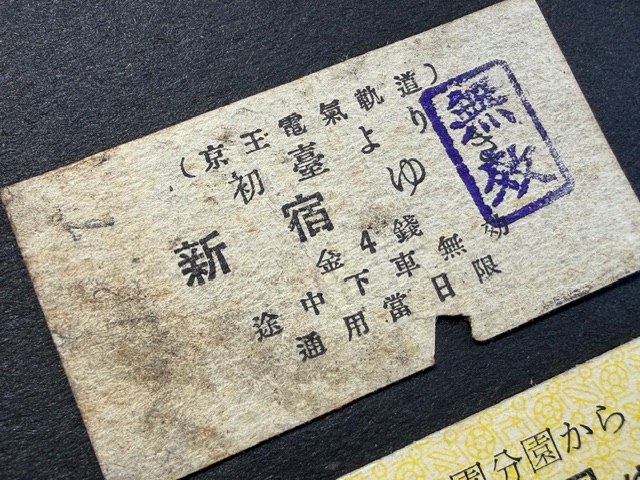 (京王電氣軌道)
初臺より
新宿ゆき
金4錢
途中下車無効
通用當日限
無效
分園から